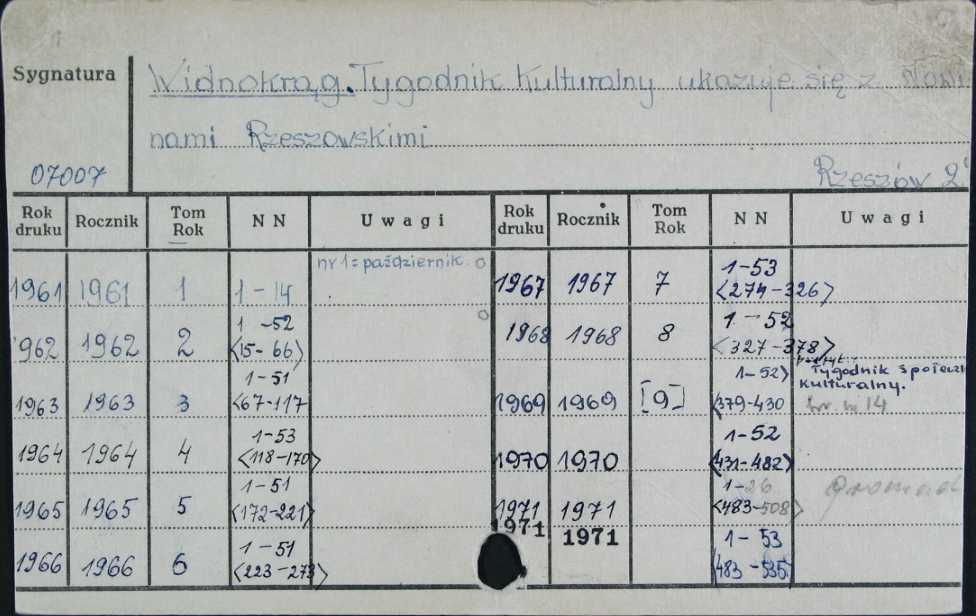 Sygnatura
Widnokrąg. Tygodnik Kulturalny ukazuje się z Nowi
nami Rzeszowskimi
07007
Rzeszów 2°
Rok druku Rocznik Tom Rok N N Uwagi Rok druku Rocznik Tom Rok N N Uwagi
nr 1 = październik
1961 1961 1 1-14
1967 1967 7 1-53 <274-326>
1962 1962 2 1-52 <15-66>
1968 1968 8 1-52 <327-378>
1963 1963 3 1-51 <67-117
1969 1969 [9] 1-52> <379-430 Tygodnik społeczn
Kulturalny.
14
1964 1964 4 1-53 <118-170>
1970 1970 1-52 <431-482>
1965 1965 5 1-51 <172-221>
1971 1971 1-26 <483-508> gromad
1966 1966 6 1-51 <223-273>
1971 1971 1-53 <483-535